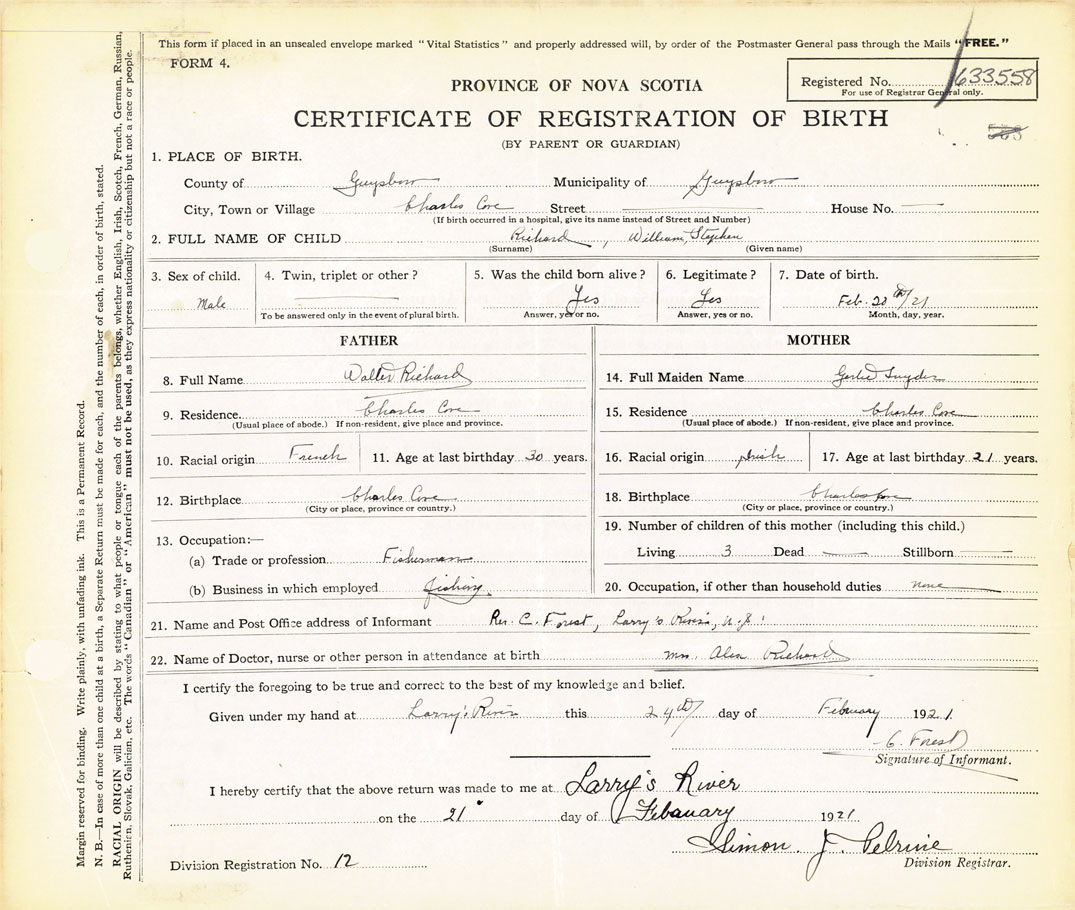 This form if placed in an unsealed envelope marked "Vital Statistics" and properly addressed will, by order of the Postmaster General pass through the Mails "FREE."
FORM 4.
Registered No. 633558
For use of Registrar General only.
PROVINCE OF NOVA SCOTIA
CERTIFICATE OF REGISTRATION OF BIRTH
(BY PARENT OR GUARDIAN)
1. PLACE OF BIRTH.
County of Guysboro Municipality of Guysboro
City, Town or Village Charles Cove Street House No.
(If birth occurred in a hospital, give its name instead of Street and Number)
2. FULL NAME OF CHILD Richard, William Stephen
(Surname) (Given name)
3. Sex of child. 4. Twin, triplet or other? 5. Was the child born alive? 6. Legitimate? 7. Date of birth.
Male Yes Yes Feb. 20th/21
To be answered only in the event of plural birth. Answer, yes or no. Answer, yes or no. Month, day, year.
FATHER
8. Full Name Walter Richard
9. Residence. Charles Cove
(Usual place of abode.) If non-resident, give place and province.
10. Racial origin French 11. Age at last birthday 30 years.
12. Birthplace Charles Cove
(City or place, province or country.)
13. Occupation:—
(a) Trade or profession Fisherman
(b) Business in which employed fishing.
MOTHER
14. Full Maiden Name Snyder
15. Residence Charles Cove
(Usual place of abode.) If non-resident, give place and province.
16. Racial origin Irish 17. Age at last birthday 21 years.
18. Birthplace Charles Cove
(City or place, province or country.)
19. Number of children of this mother (including this child.)
Living 3 Dead Stillborn
20. Occupation, if other than household duties none
21. Name and Post Office address of Informant Rev. C. Forest, Larry's River, N.S.
22. Name of Doctor, nurse or other person in attendance at birth Mrs. Alex Richard
I certify the foregoing to be true and correct to the best of my knowledge and belief.
Given under my hand at Larry's River this 24th day of February 1921.
C. Forest
Signature of Informant.
I hereby certify that the above return was made to me at Larry's River
on the 21 day of Febauary 1921.
Simon J. Pelrine
Division Registration No. 12 Division Registrar.
Margin reserved for binding. Write plainly, with unfading ink. This is a Permanent Record.
N. B.—In case of more than one child at a birth, a Separate Return must be made for each, and the number of each, in order of birth, stated.
RACIAL ORIGIN will be described by stating to what people or tongue each of the parents belongs, whether English, Irish, Scotch, French, German, Russian,
Ruthenian, Slovak, Galician, etc. The words "Canadian" or "American" must not be used, as they express nationality or citizenship but not a race or people.